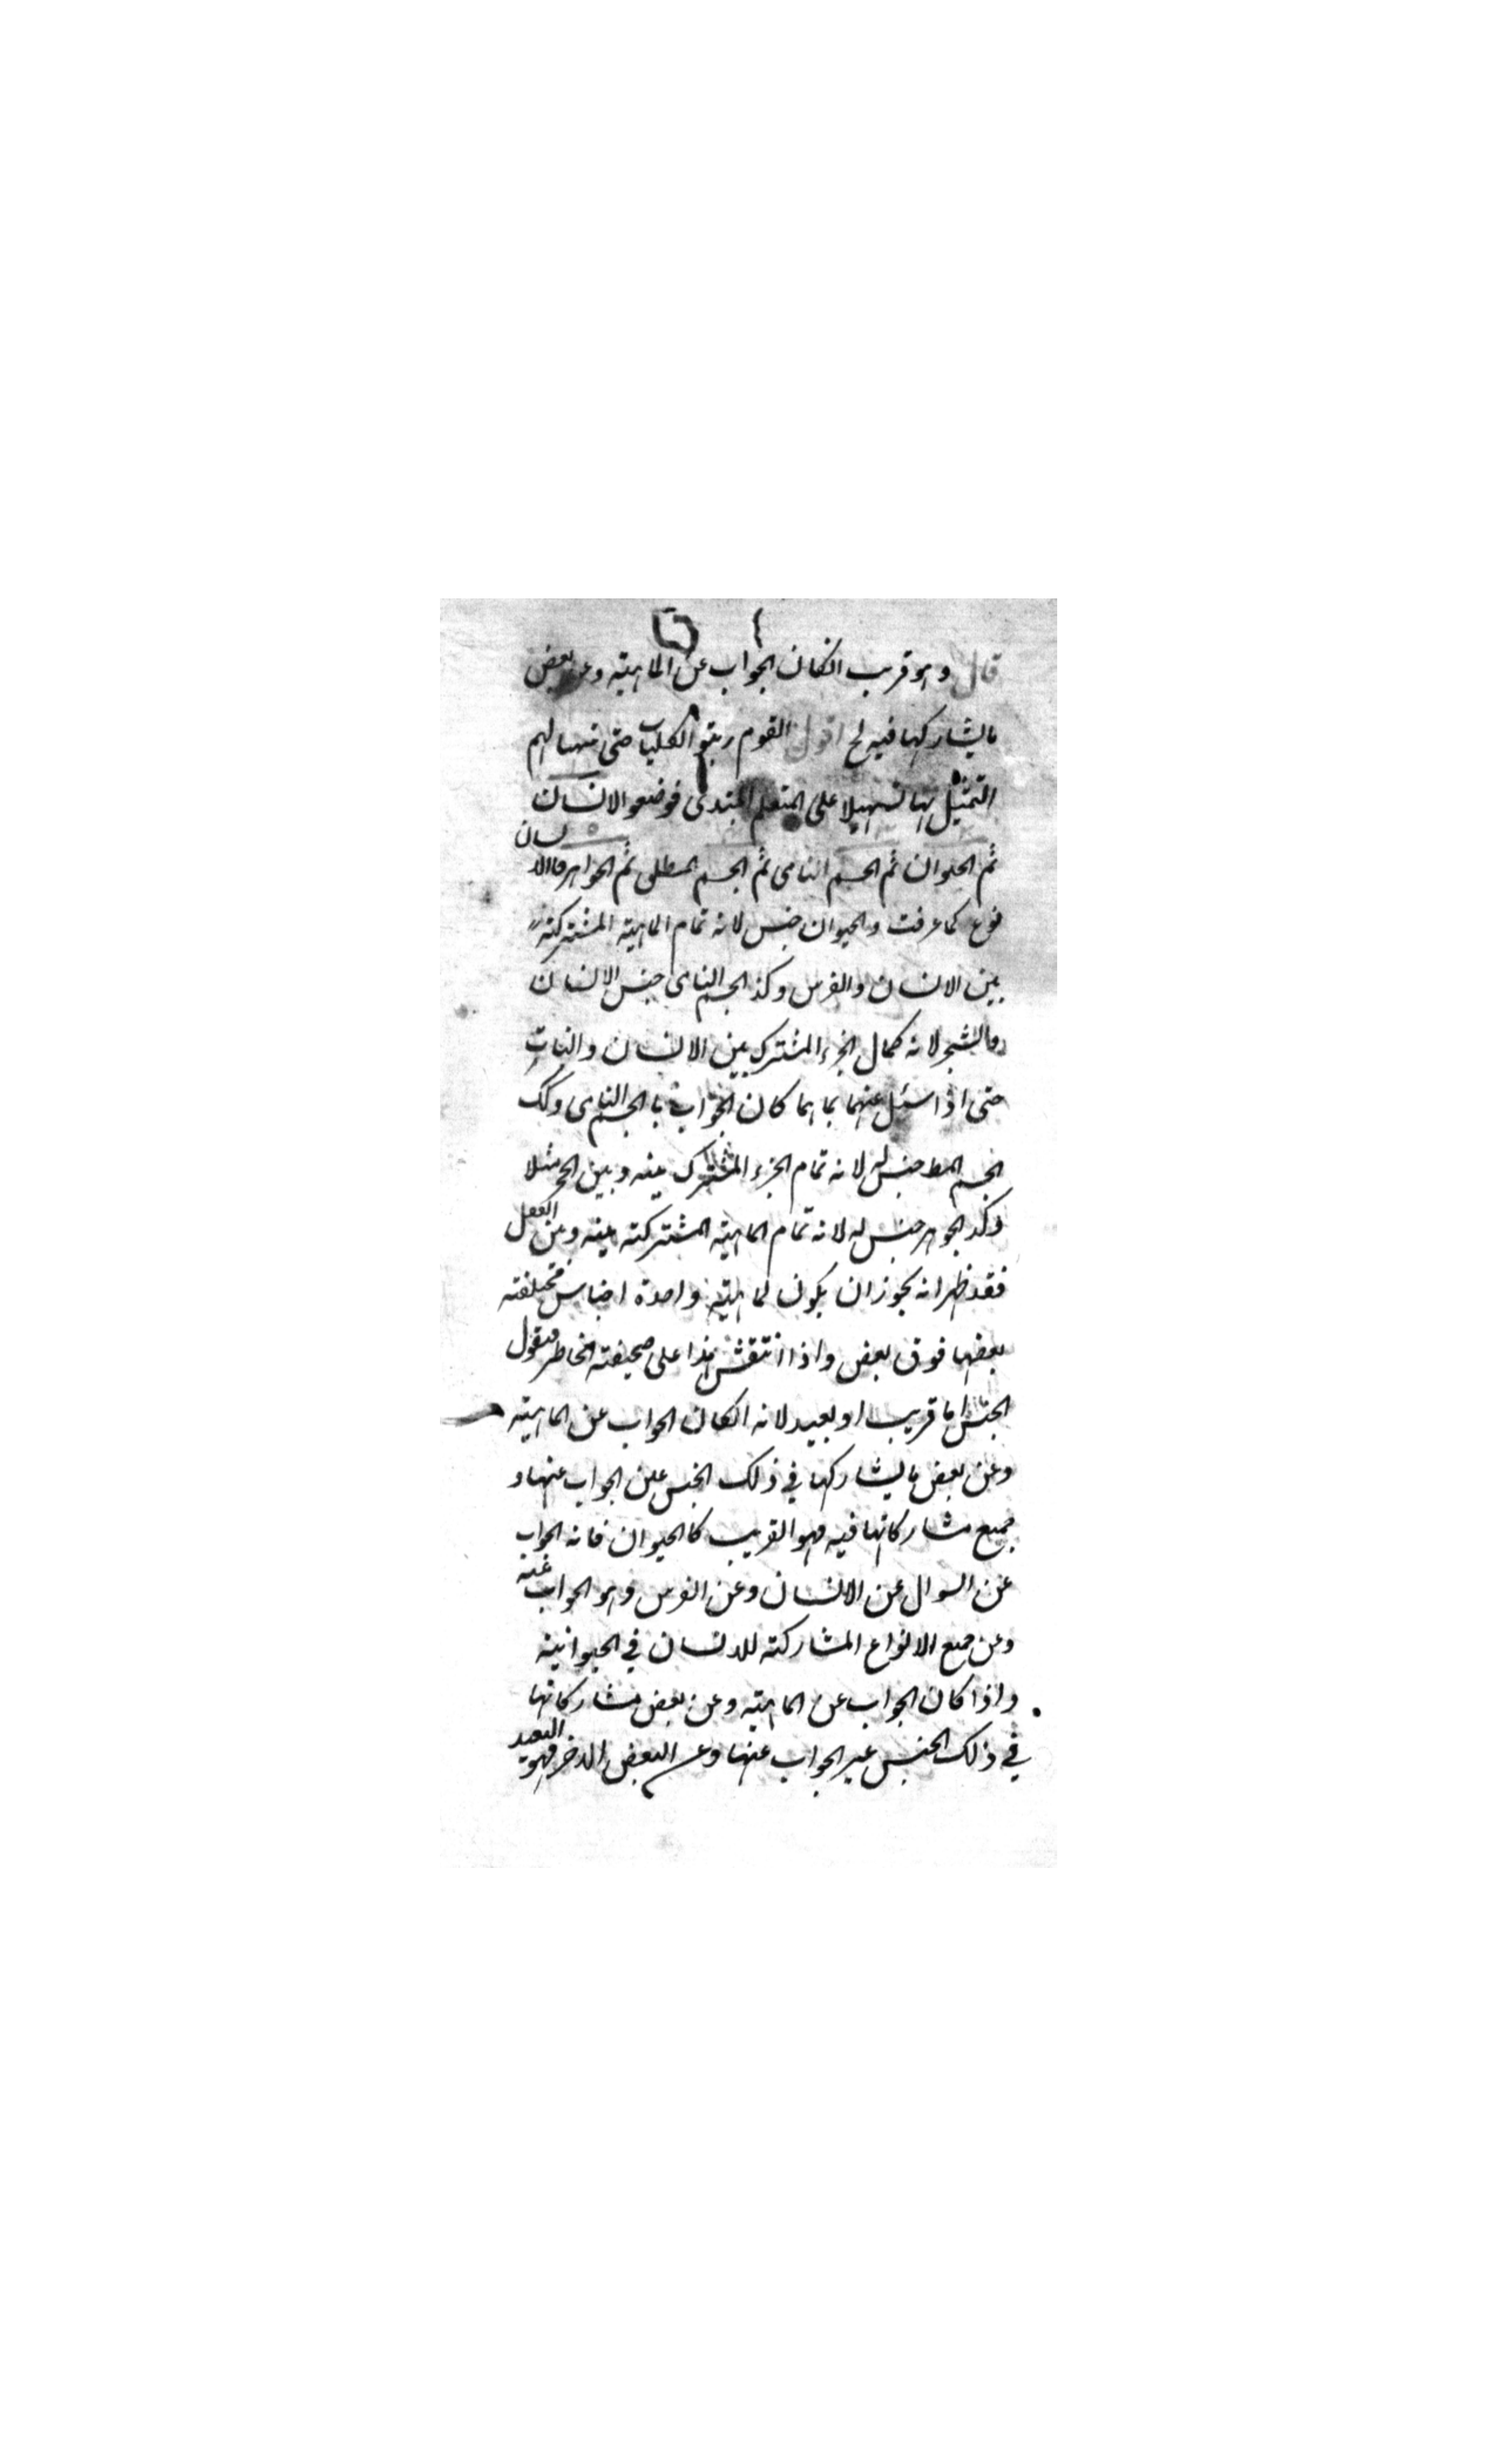 قال وهو قريب انكان الجواب عن الماهية وعن بعض
ما يشاركها فيه الخ اقول القوم رتبوا الكليات حتى تهيا لهم
التمثيل بها تسهيلا على المتعلم المبتدى فوضعوا الانسان
ثم الحيوان ثم الجسم النامى ثم الجسم المطلق ثم الجواهر فالانسان
نوع كما عرفت والحيوان جنس لانه تمام الماهية المشتركة
بين الانسان والفرس وكذا الجسم النامى جنس الانسان
والشجر لانه كمال الجزء المشترك بين الانسان والنبات
حتى اذا سئل عنهما بما هما كان الجواب بالجسم النامى وكك
الجسم المط جنس له لانه تمام الجزء المشترك بينه وبين الحجر مثلا
وكذ الجوهر جنس له لانه تمام الماهية المشتركة بينه وبين العقل
فقد ظهر انه يجوز ان يكون لماهية واحدة اجناس مختلفة
بعضها فوق بعض واذا انتقش هذا على صحيفة الخاطر فنقول
الجنس اما قريب او بعيد لانه انكان الجواب عن الماهية
وعن بعض ما يشاركها في ذلك الجنس عين الجواب عنها و
جميع مشاركاتها فيه فهو القريب كالحيوان فانه الجواب
عن السوال عن الانسان وعن الفرس وهو الجواب عنه
وعن جميع الانواع المشاركة للانسان في الحيوانية
واذا كان الجواب عن الماهية وعن بعض مشاركاتها
في ذلك الجنس غير الجواب عنها وعن البعض الاخر فهو البعيد